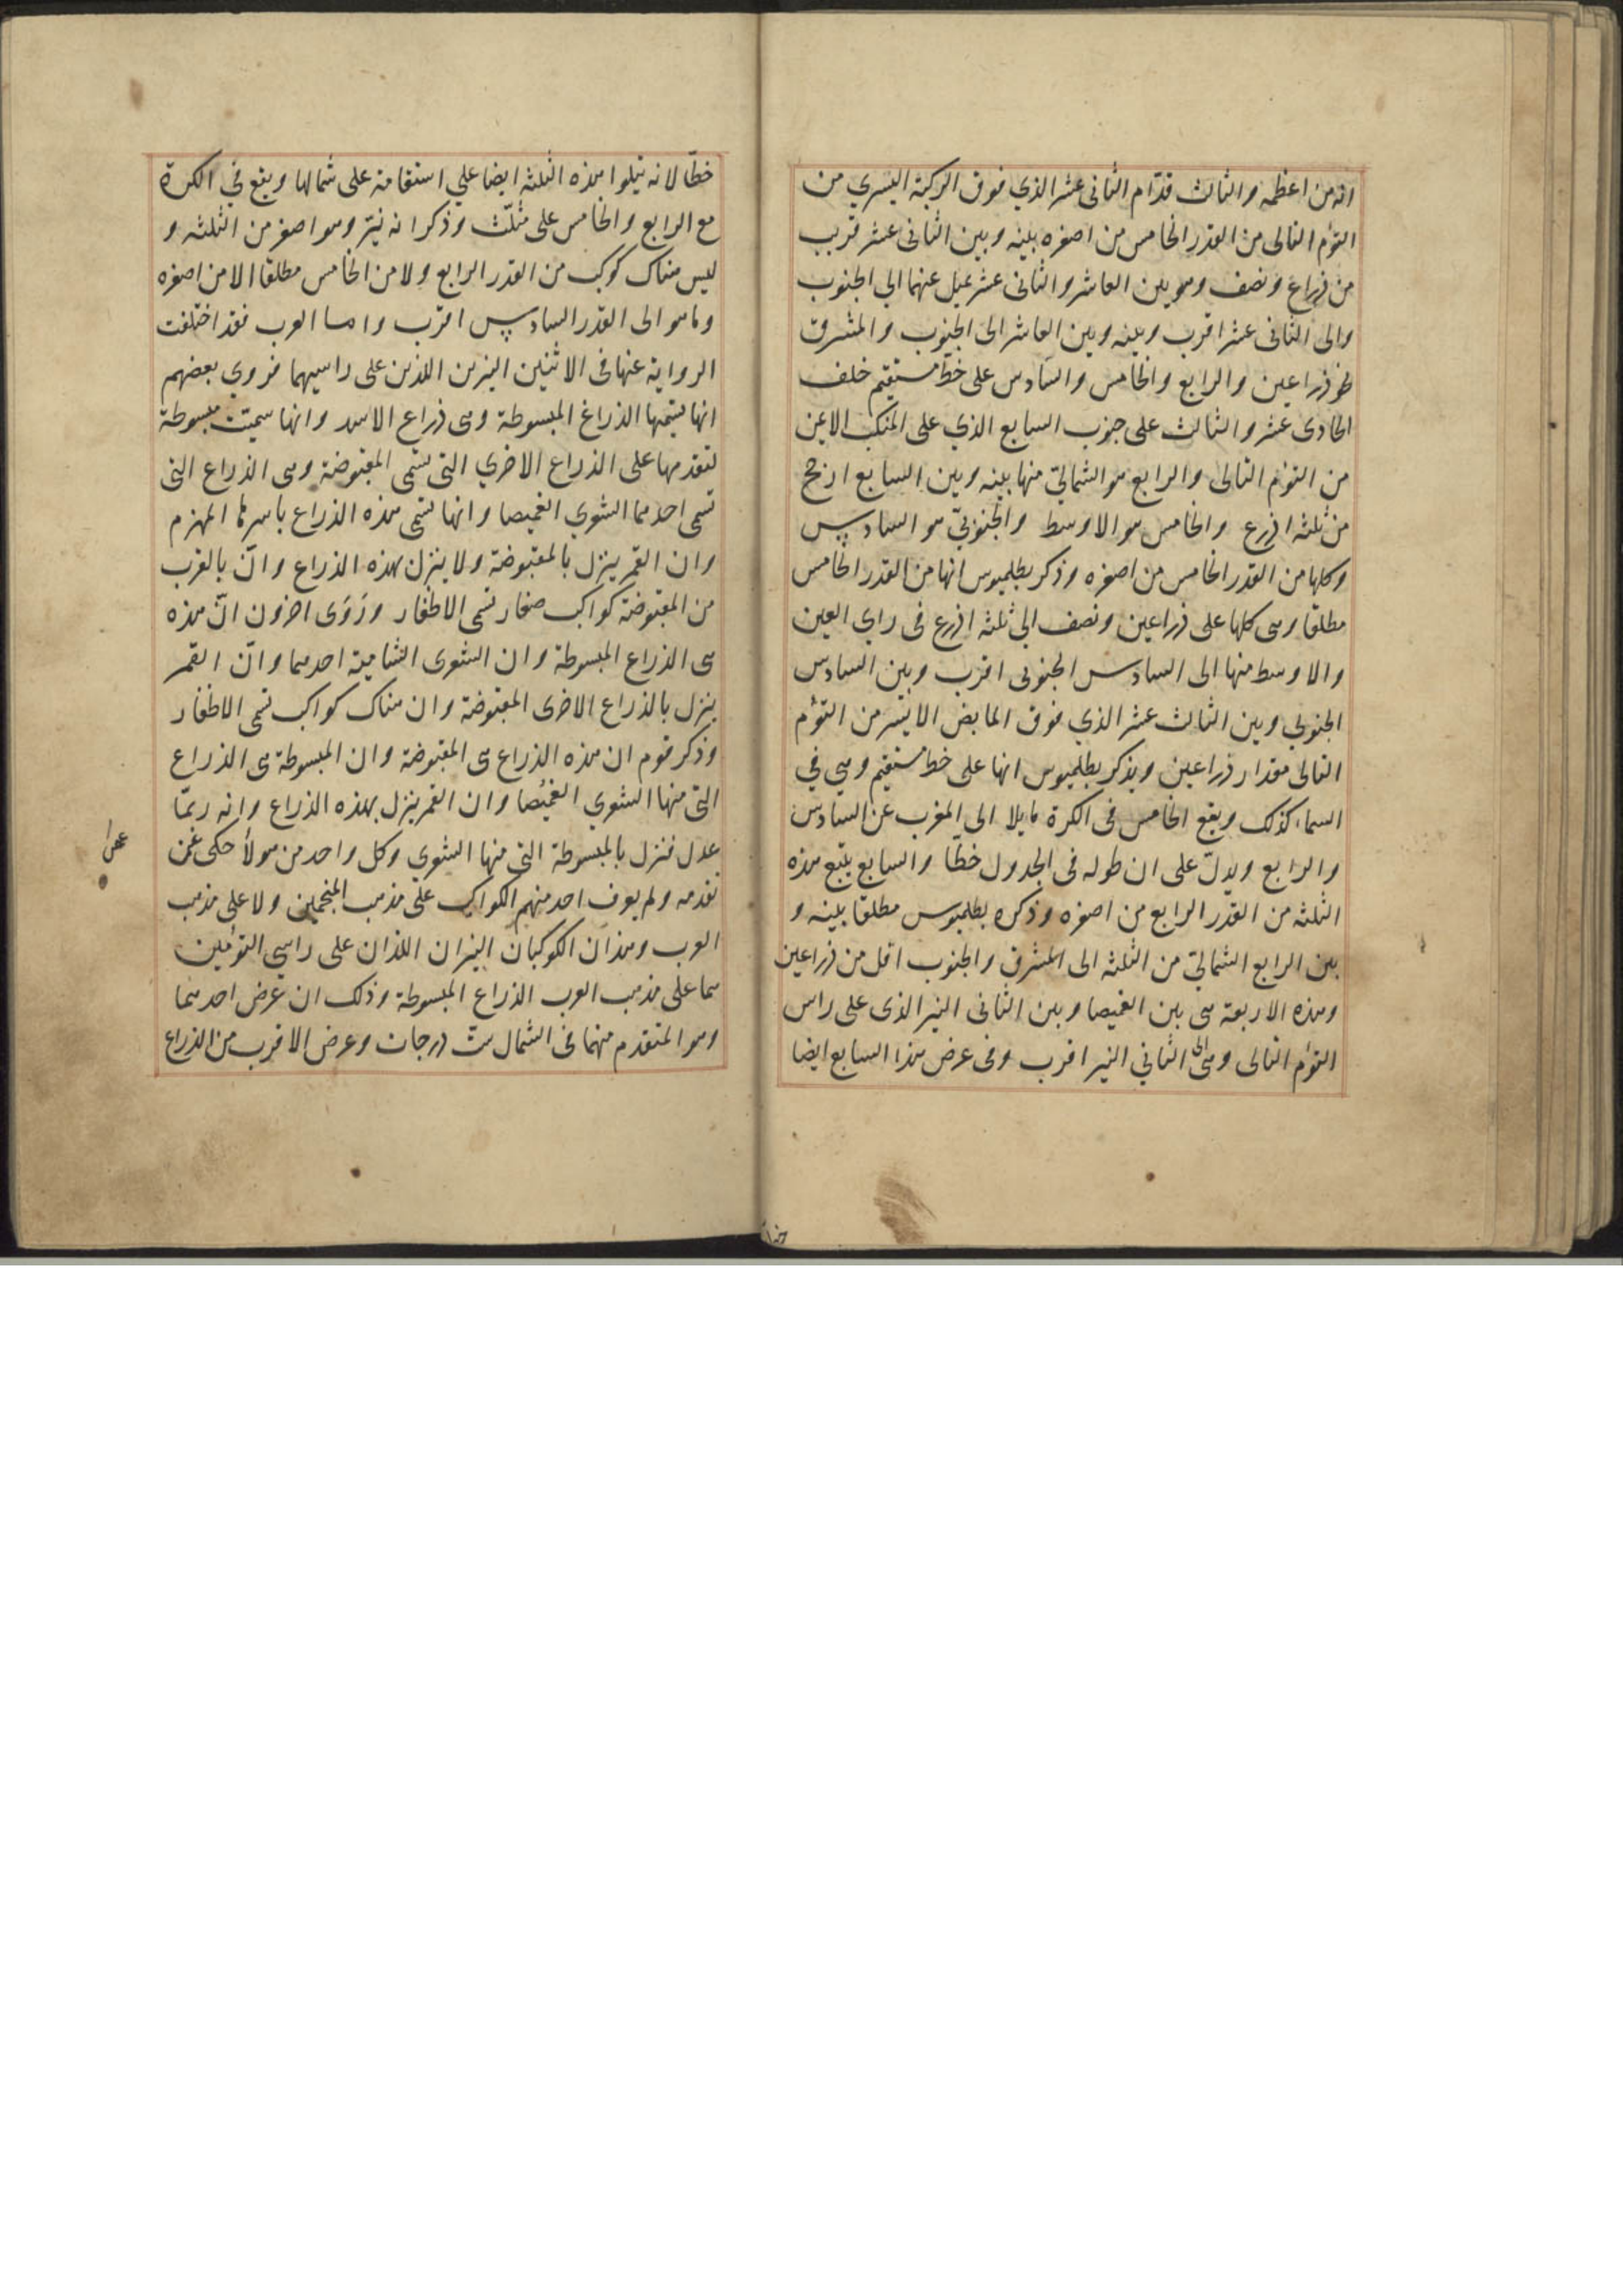 انه من اعظمه والثالث قدّام الثانى عشر الذي فوق الركبة اليسري من
التوٴم التالى من القدر الخامس من اصغره بينه وبين الثانى عشر قريب
من ذراع ونصف وهو بين العاشر والثانى عشر يميل عنهما الي الجنوب
والى الثانى عشر اقرب وبينه وبين العاشر الى الجنوب والمشرق
نحو ذراعين والرابع والخامس والسادس على خطّ مستقيم خلف
الحادى عشر والثالث على جنوب السابع الذي على المنكب الايمن
من التوٴم التالى والرابع هو الشمالىّ منها بينه وبين السابع ارجح
من ثلثه اذرع والخامس هو الاوسط والجنوبىّ هو السادس
وكلها من القدر الخامس من اصغره وذكر بطلميوس انها من القدر الخامس
مطلقا وهى كلها على ذراعين ونصف الي ثلثه اذرع فى راي العين
والاوسط منها الى السادس الجنوبى اقرب وبين السادس
الجنوبي وبين الثالث عشر الذي فوق المابض الايسر من التوٴم
التالى مقدار ذراعين ويذكر بطلميوس انها على خط مستقيم وهي في
السماء كذلك ويقع الخامس فى الكرة مايلا الى المغرب عن السادس
والرابع ويدلّ على ان طوله فى الجدول خطّا والسابع يتبع هذه
الثلثه من القدر الرابع من اصغره وذكره بطلميوس مطلقا بينه و
بين الرابع الشمالىّ من الثلثه الى المشرق والجنوب اقل من ذراعين
وهذه الاربعة هى بين الغميصا وبين الثانى النير الذى على راس
التوٴم التالى وهى الى الثاني النير اقرب وفى عرض هذا السابع ايضا
خطّا لانه يتلوا هذه الثلثه ايضا علي استقامة على شمالها ويقع في الكرة
مع الرابع والخامس على مثلّث وذكر انه نيّر وهو اصغر من الثلثه و
ليس هناك كوكب من القدر الرابع ولا من الخامس مطلقا الا من اصغره
وما هو الى القدر السادس اقرب واما العرب فقد اختلفت
الرواية عنها فى الاثنين النيرين اللذين على راسيهما فروي بعضهم
انها تسمّيها الذراع المبسوطة وهى ذراع الاسد وانها سميت مبسوطة
لتقدمها على الذراع الاخري التى تسمى المقبوضة وهى الذراع التى
تسمى احدهما الشعري الغميصا وانها تسمى هذه الذراع باسرها المهزم
وان القمر ينزل بالمقبوضة ولا ينزل بهذه الذراع وانّ بالقرب
من المقبوضة كواكب صغار تسمى الاظفار ورَوَى اخرون انّ هذه
هى الذراع المبسوطة وان الشعرى الشامية احدهما وانّ القمر
ينزل بالذراع الاخرى المقبوضة وان هناك كواكب تسمى الاظفار
وذكر قوم ان هذه الذراع هى المقبوضة وان المبسوطة هى الذراع
التى منها الشعري الغميصا وان القمر ينزل بهذه الذراع وانه ربمّا
عدل فنزل بالمبسوطة التى منها الشعري وكل واحد من هولاٴ حكى عمّن
تقدمه ولم يعرف احد منهم الكواكب على مذهب المنجمين ولا على مذهب
العرب وهذان الكوكبان النيران اللذان على راسي التوٴمين
هما على مذهب العرب الذراع المبسوطة وذلك ان عرض احدهما
وهو المتقدم منهما فى الشمال ستّ درجات وعرض الاقرب من الذراع